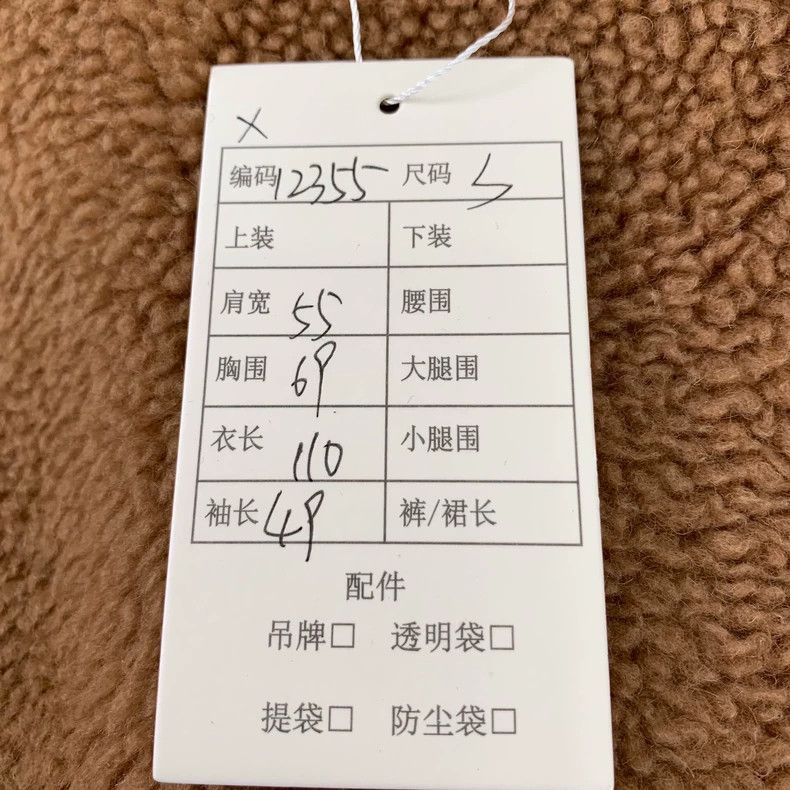 ×
编码 12355 尺码 S
上装 下装
肩宽 55 腰围
胸围 69 大腿围
衣长 110 小腿围
袖长 49 裤/裙长
配件
吊牌□ 透明袋□
提袋□ 防尘袋□